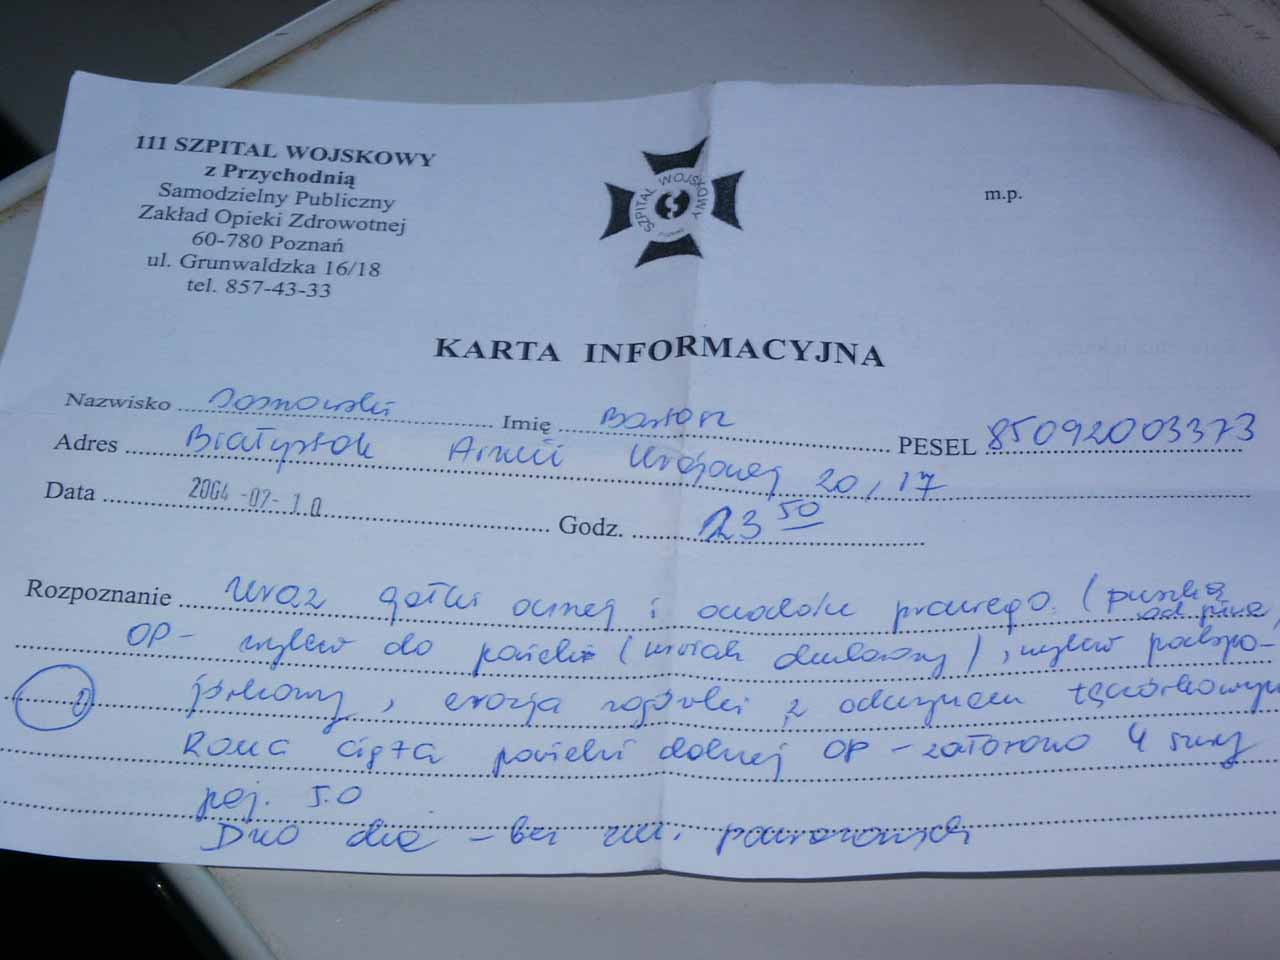 111 SZPITAL WOJSKOWY
z Przychodnią
Samodzielny Publiczny
Zakład Opieki Zdrowotnej
60-780 Poznań
ul. Grunwaldzka 16/18
tel. 857-43-33
SZPITAL WOJSKOWY
m.p.
KARTA INFORMACYJNA
Nazwisko Imię Bartosz PESEL 85092003373
Adres Białystok Armii Krajowej 20/17
Data 2004-07-10 Godz. 23 50
Rozpoznanie Uraz gałki ocznej i oczodołu prawego (puszką od piwa)
OP - wylew do powieki (krwiak okularowy), wylew podspo-
jówkowy, erozja rogówki z odczynem tęczówkowym
Rana cięta powieki dolnej OP - założono 4 szwy
poj. 5.0
Dno oka - bez zm. pourazowych